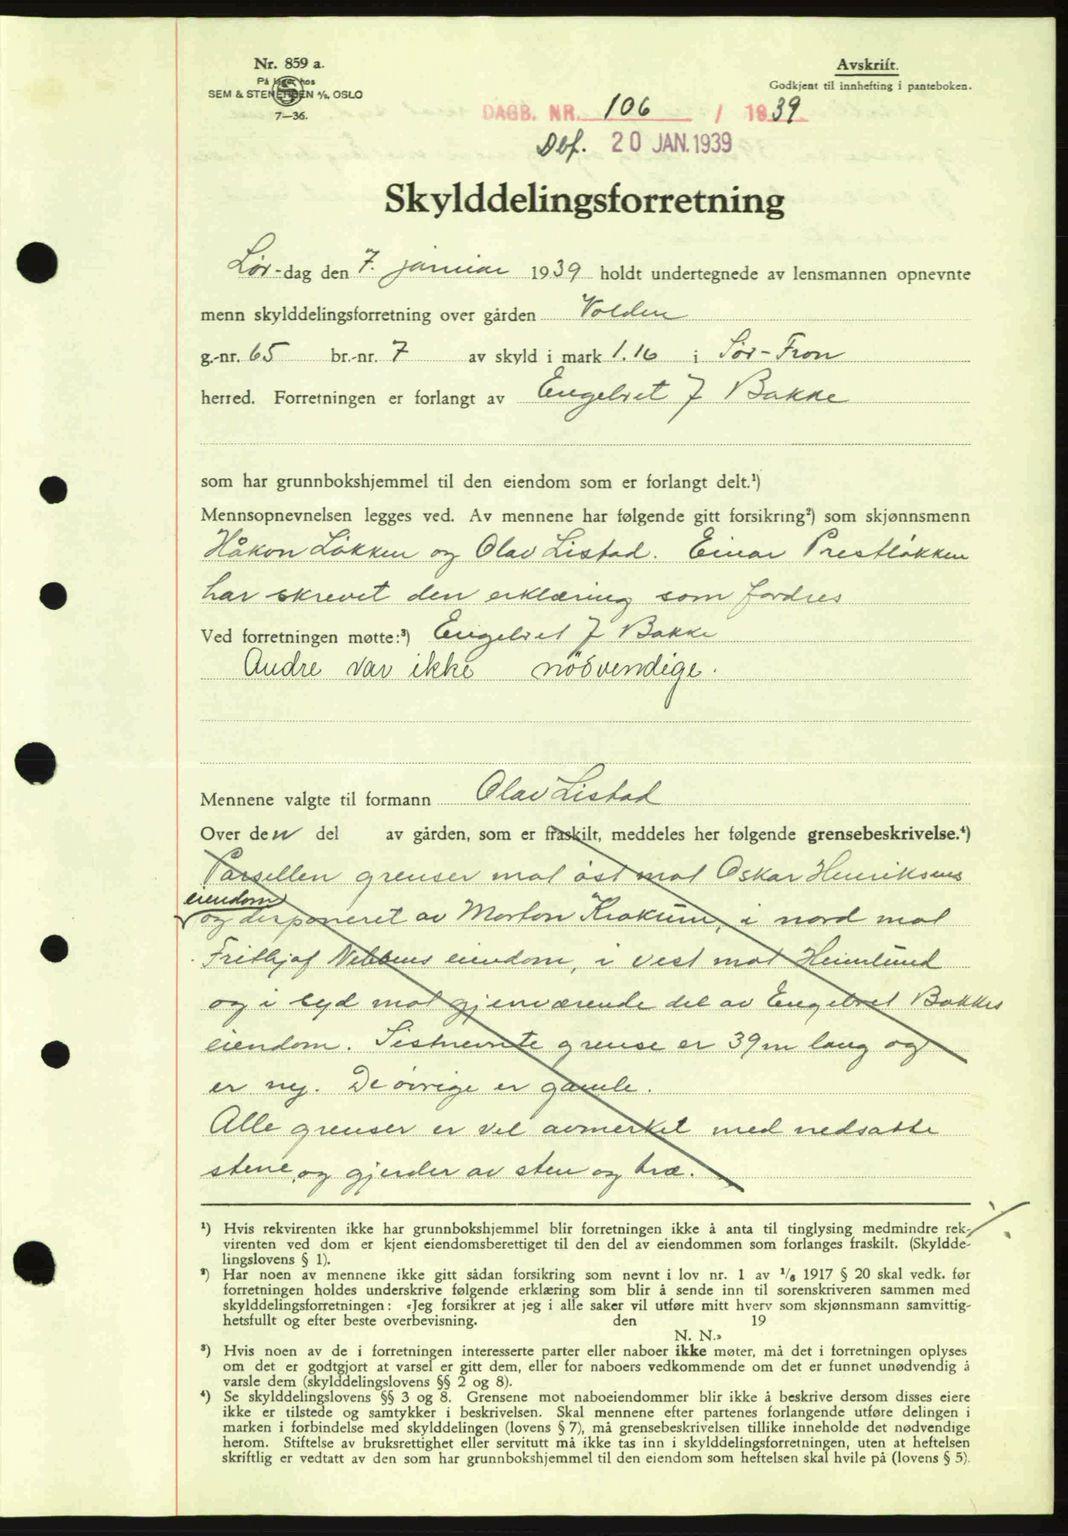 Nr. 859 a.
På lager hos
SEM & STENERSEN A/S, OSLO
7—36.
Avskrift.
Godkjent til innhefting i panteboken.
DAGB. NR. 106 / 1939
Dbf. 20 JAN. 1939
Skylddelingsforretning
Lør-dag den 7. januar 1939 holdt undertegnede av lensmannen opnevnte
menn skylddelingsforretning over gården Volden
g.-nr. 65 br.-nr. 7 av skyld i mark 1.16 i Sør-Fron
herred. Forretningen er forlangt av Engebret J Bakke
som har grunnbokshjemmel til den eiendom som er forlangt delt.¹)
Mennsopnevnelsen legges ved. Av mennene har følgende gitt forsikring²) som skjønnsmenn
Håkon Løkken og Olav Listad. Einar Prestløkken
har skrevet den erklæring som fordres
Ved forretningen møtte:³) Engebret J Bakke
Andre var ikke nödvendige.
Mennene valgte til formann Olav Listad
Over den del av gården, som er fraskilt, meddeles her følgende grensebeskrivelse.⁴)
Parsellen grenser mot øst mot Oskar Henriksens
eiendom
og disponeret av Morton Krokum, i nord mot
Frithjof Nibbens eiendom, i vest mot Heimlund
og i syd mot gjenværende del av Engebret Bakkes
eiendom. Sistnevnte grense er 39 m lang og
er ny. De øvrige er gamle.
Alle grenser er vel avmerket med nedsatte
stene, og gjerder av sten og træ.
¹) Hvis rekvirenten ikke har grunnbokshjemmel blir forretningen ikke å anta til tinglysing medmindre rek-
virenten ved dom er kjent eiendomsberettiget til den del av eiendommen som forlanges fraskilt. (Skyldde-
lingslovens § 1).
²) Har noen av mennene ikke gitt sådan forsikring som nevnt i lov nr. 1 av ¹/₆ 1917 § 20 skal vedk. før
forretningen holdes underskrive følgende erklæring som blir å sende inn til sorenskriveren sammen med
skylddelingsforretningen: «Jeg forsikrer at jeg i alle saker vil utføre mitt hverv som skjønnsmann samvittig-
hetsfullt og efter beste overbevisning. den 19
N. N.»
³) Hvis noen av de i forretningen interesserte parter eller naboer ikke møter, må det i forretningen oplyses
om det er godtgjort at varsel er gitt dem, eller for naboers vedkommende om det er funnet unødvendig å
varsle dem (skylddelingslovens §§ 2 og 8).
⁴) Se skylddelingslovens §§ 3 og 8. Grensene mot naboeiendommer blir ikke å beskrive dersom disses eiere
ikke er tilstede og samtykker i beskrivelsen. Skal mennene efter partenes forlangende utføre delingen i
marken i forbindelse med skylddelingen (lovens § 7), må grensebeskrivelsen tillike inneholde det nødvendige
herom. Stiftelse av bruksrettighet eller servitutt må ikke tas inn i skylddelingsforretningen, uten at heftelsen
skriftlig er vedtatt av den som har grunnbokshjemmel til den eiendom som heftelsen skal hvile på (lovens § 5).